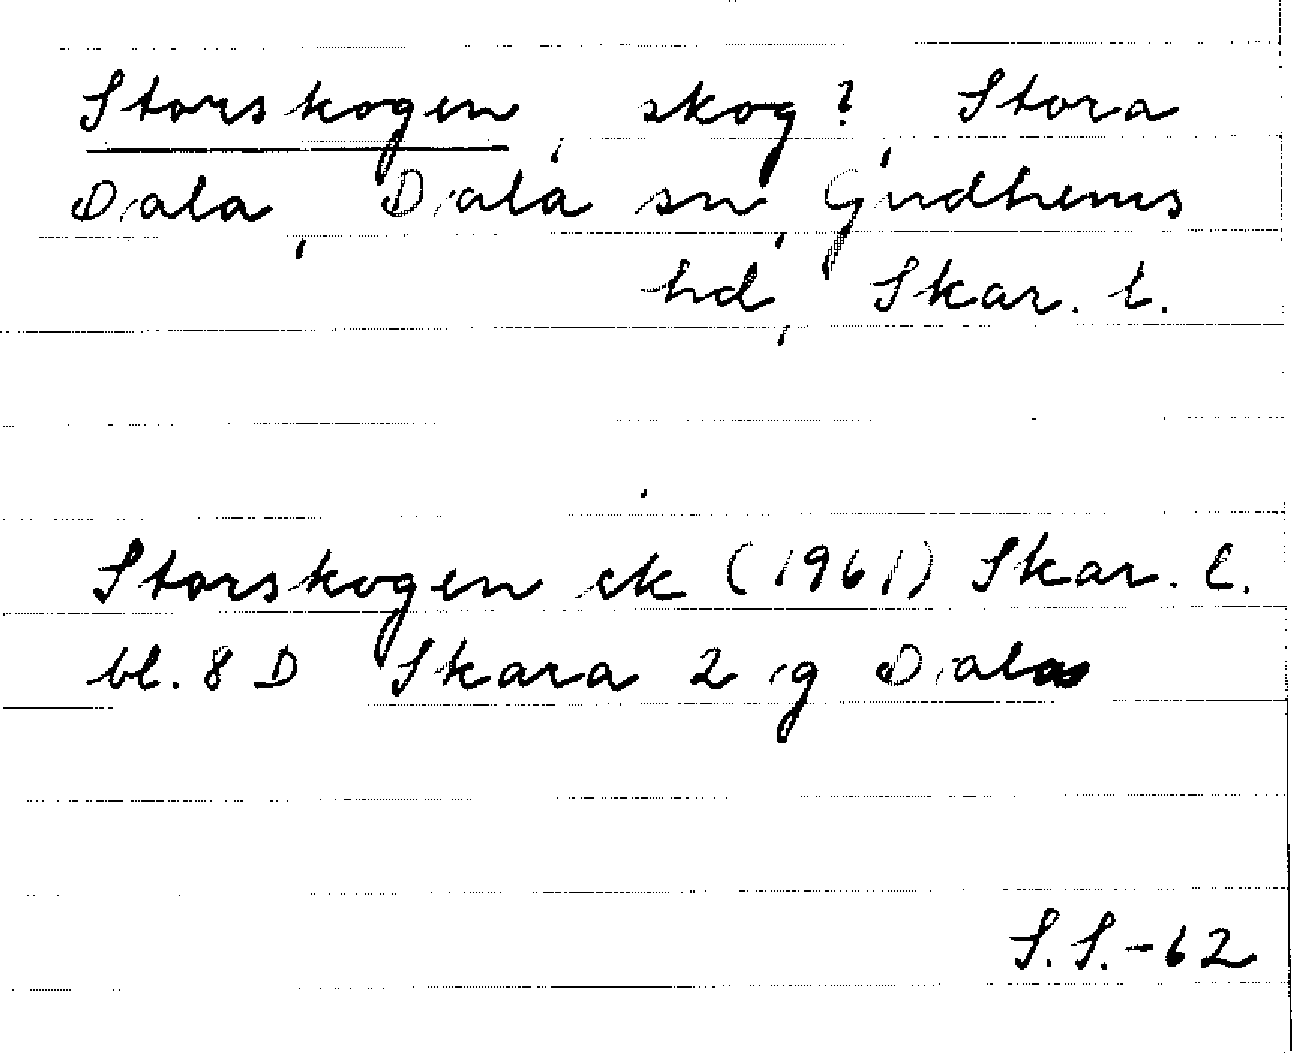 Storskogen, skog? Stora
Dala, Dala sn, Gudhems
hd, Skar. l.
Storskogen ek (1961) Skar. l.
bl. 8 D Skara 2 g Dala
S.S.-62